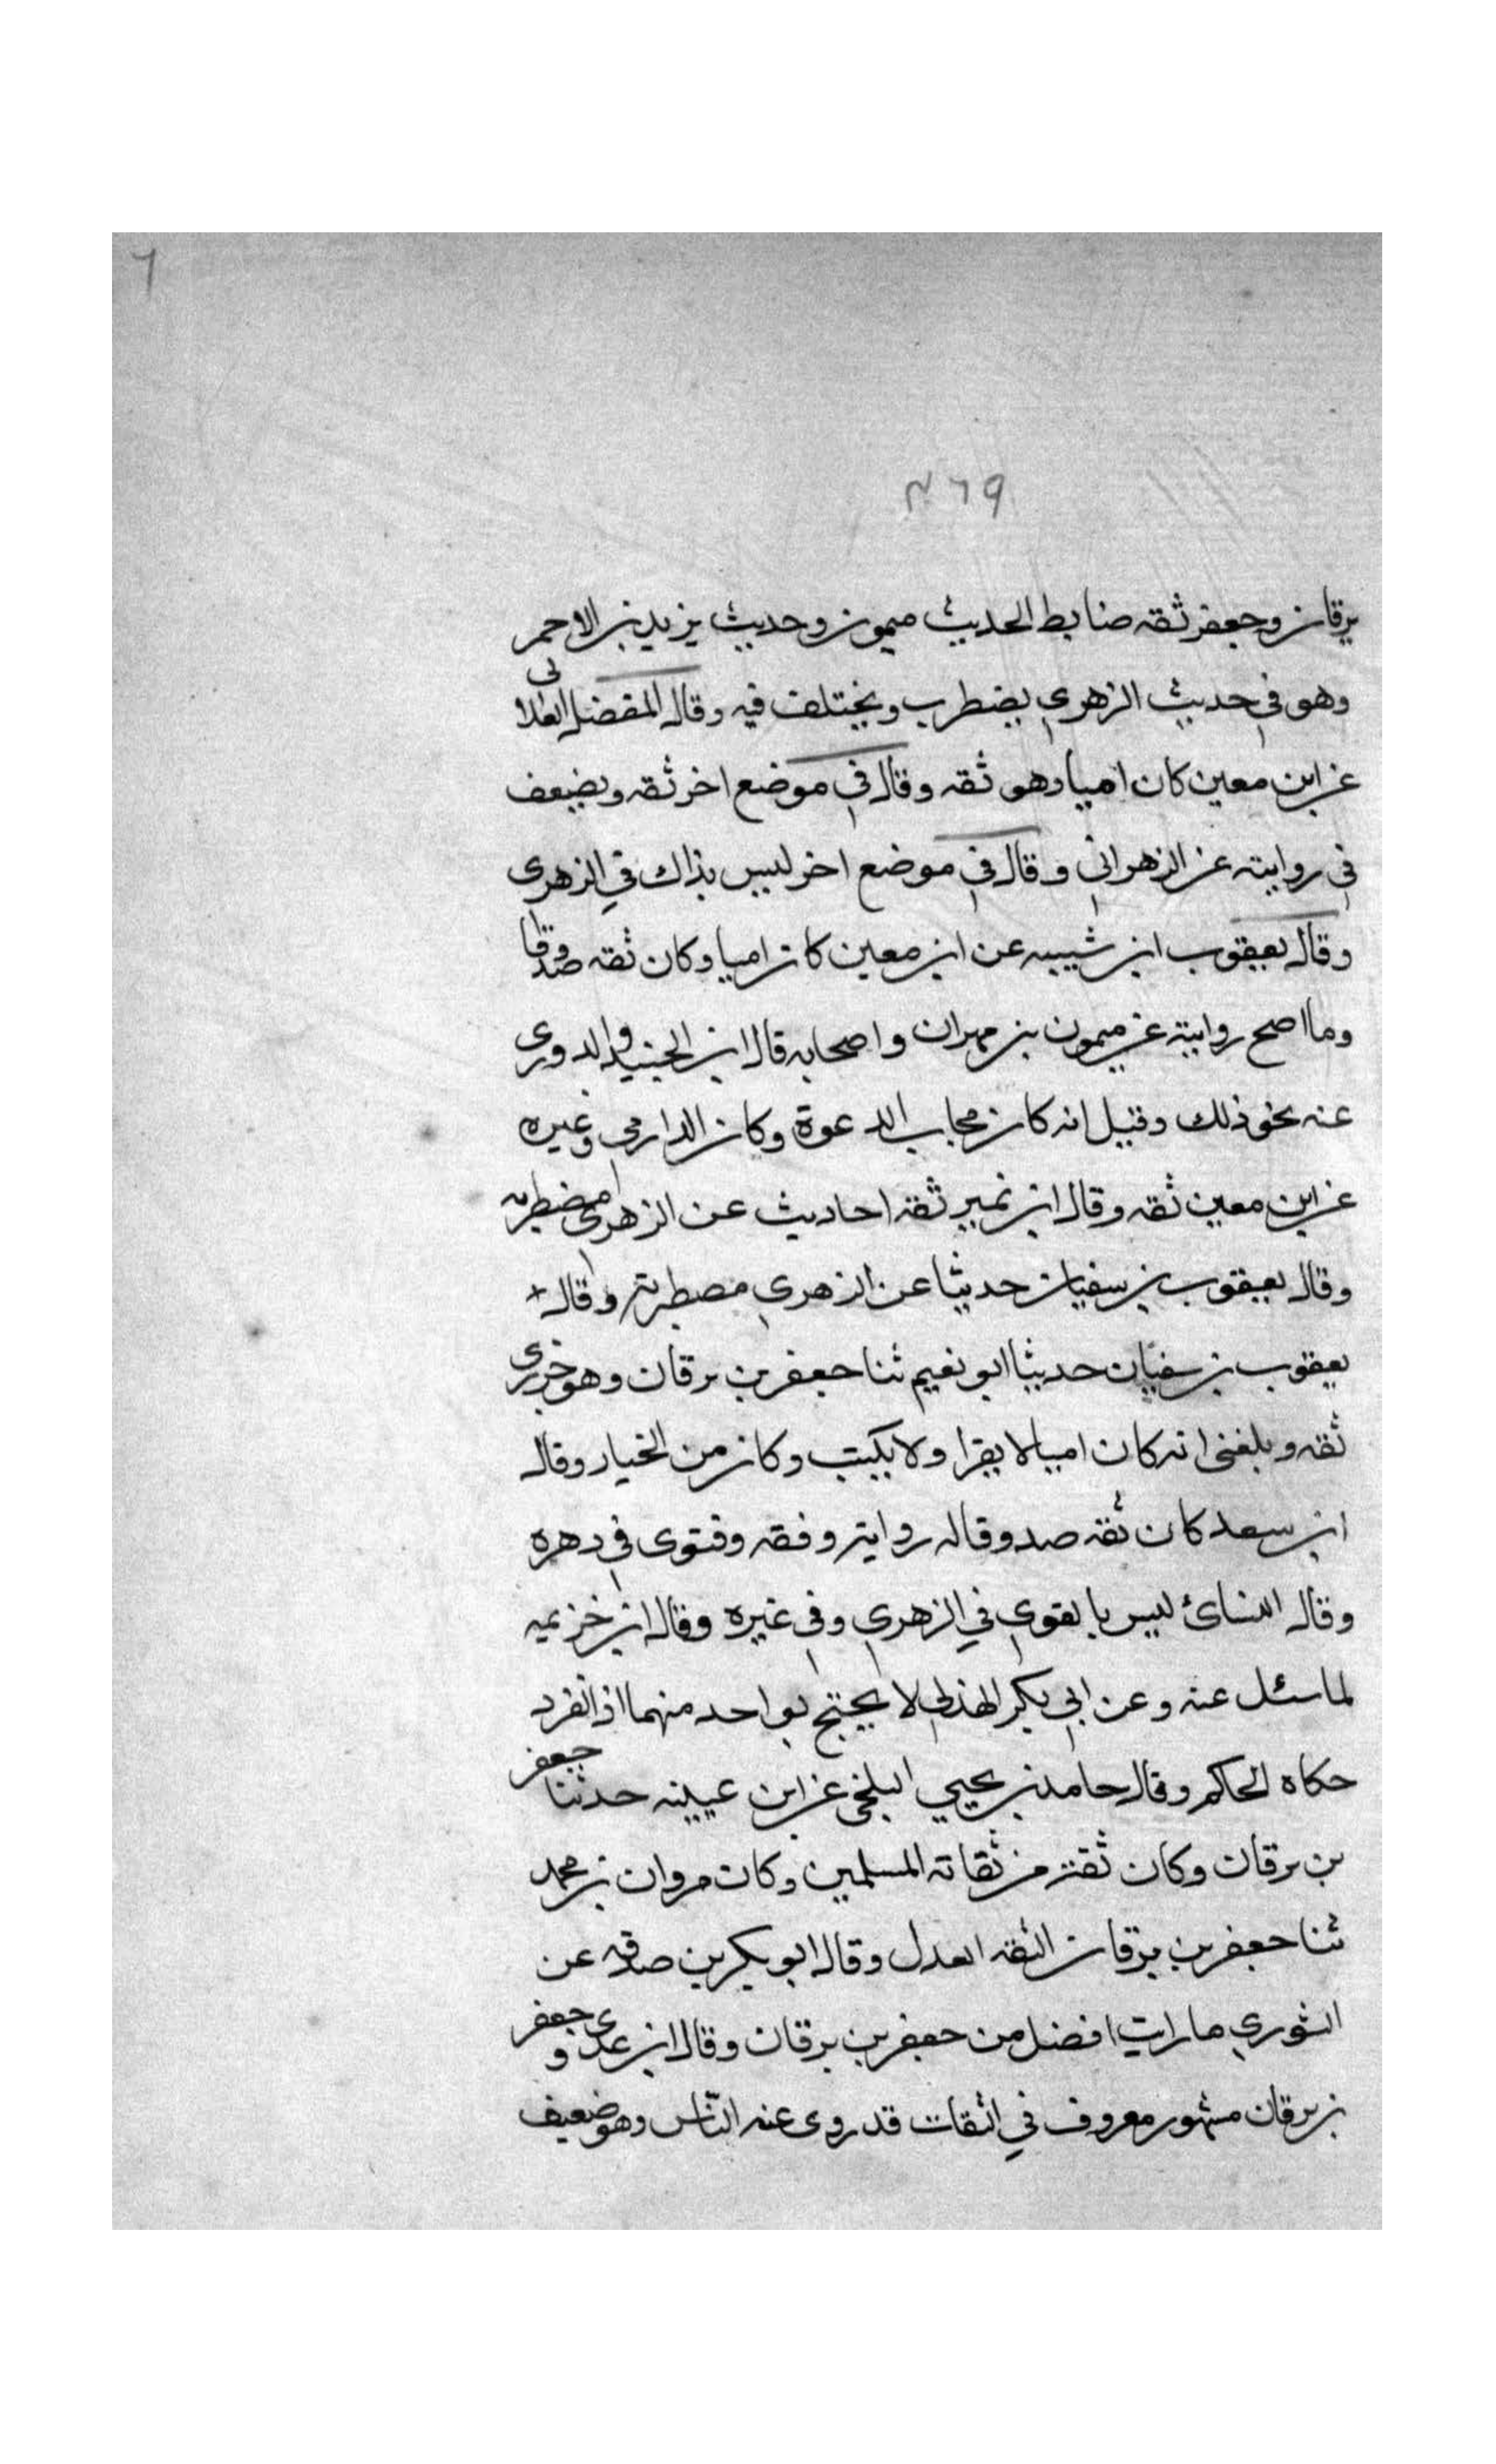 ٦
٩٦٣
برقان وجعفر ثقه ضابط الحديث ميمون وحديث يزيد بن الاحمر
وهو في حديث الزهري يضطرب ويختلف فيه وقال المفضل الغلابى
عن ابن معين كان اميا وهو ثقه وقال في موضع اخر ثقه ويضعف
في روايته عن الزهراني وقال في موضع اخر ليس بذاك في الزهرى
وقال يعقوب ابن شيبه عن ابن معين كان اميا وكان ثقه صدوقا
وما اصح روايته عن ميمون بن مهران واصحابه قال ابن الجنيد والدورى
عنه نحو ذلك وقيل انه كان مجاب الدعوة وكان الدارمي وغيره
عن ابن معين ثقه وقال ابن نمير ثقة احاديث عن الزهرى مضطربه
وقال يعقوب بن سفيان حديثا عن الزهري مصطربة وقال
يعقوب بن سفيان حديثا ابو نعيم ثنا جعفر بن برقان وهو جزرى
ثقه وبلغنى انه كان اميا لا يقرا ولا يكتب وكان من الخيار وقال
ابن سعد كان ثقه صدوقا له رواية وفقه وفتوى في دهره
وقال النسائ ليس بالقوي في الزهري وفي غيره وقال ابن خزيمه
لما سئل عنه وعن ابي بكر الهذلي لا يحتج بواحد منهما اذا انفرد
حكاه الحاكم وقال حامد بن يحيي البلخي عن ابن عيينه حدثنا جعفر
بن برقان وكان ثقة من ثقاته المسلمين وكان مروان بن محمد
ثنا جعفر بن برقان الثقه العدل وقال ابو بكر بن صدقه عن
الثوري ما رايت افضل من جعفر بن برقان وقال ابن عدى وجعفر
بن برقان مشهور معروف في الثقات قد روى عنه النّاس وهو ضعيف